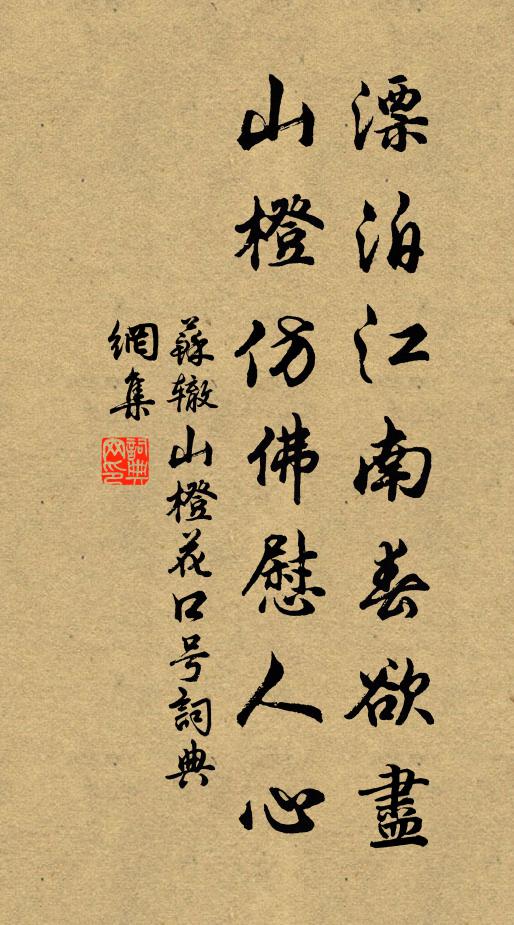 漂泊江南春欲盡
山橙仿佛慰人心
蘇辙山橙花口号詞典
網集
詞典網印